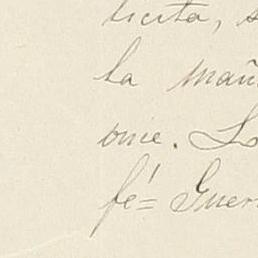 licita, s
la mañ
one. Lo
fé= Guer